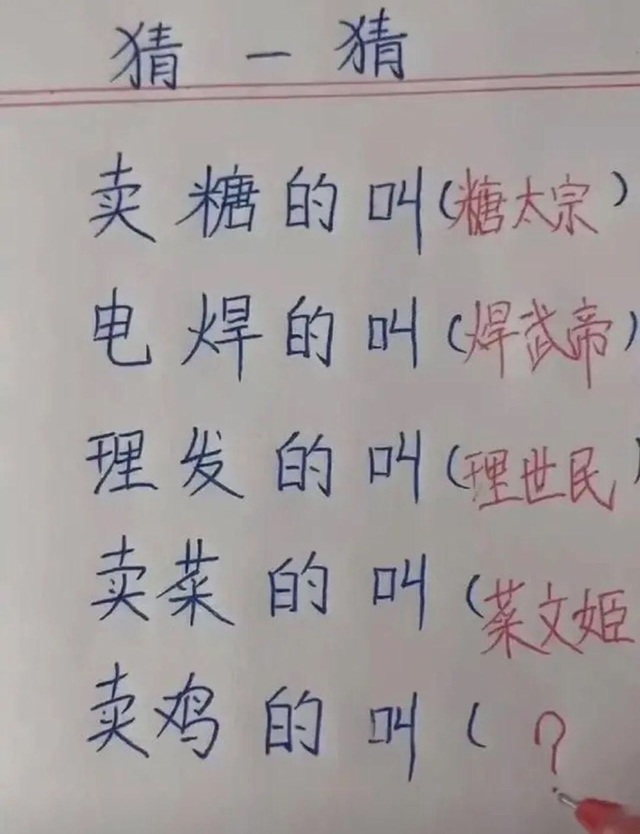 猜一猜
卖糖的叫(糖太宗)
电焊的叫(焊武帝)
理发的叫(理世民)
卖菜的叫(菜文姬
卖鸡的叫( ?